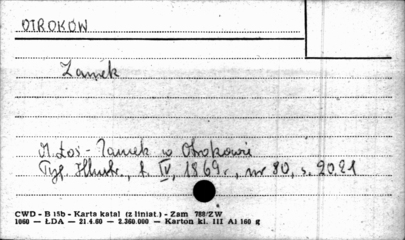 OTROKÓW
Zamek
A. Łoś - Zamek w Otrokowie
Tyg. Illustr., t. IV, 1869 r., nr 80, s. 20.21
CWD - B 15b - Karta katal (z liniat.) - Zam 788/ZW
1060 — ŁDA — 21.4.60 — 2.360.000 — Karton kl. III A1 160 g